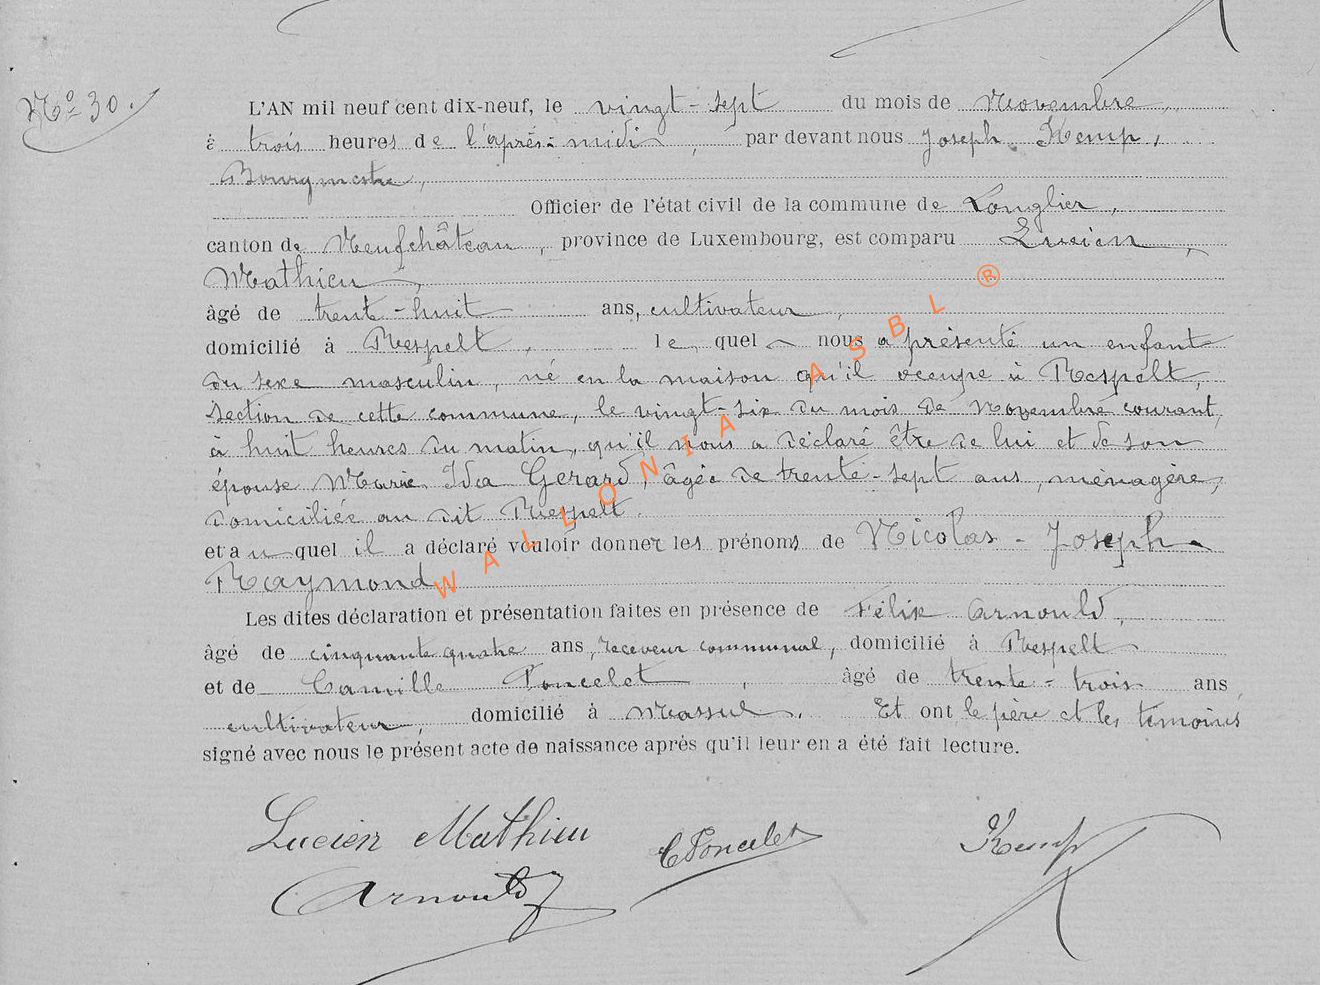 No 30.
L'AN mil neuf cent dix-neuf, le vingt-sept du mois de Novembre,
à trois heures de l'après-midi, par devant nous Joseph Kemp,
Bourgmestre,
Officier de l'état civil de la commune de Longlier,
canton de Neufchâteau, province de Luxembourg, est comparu Lucien,
Mathieu,
âgé de trent-huit ans, cultivateur,
domicilié à Respelt, lequel nous a présenté un enfant
du sexe masculin, né en la maison qu'il occupe à Respelt,
section de cette commune, le vingt-six du mois de Novembre courant,
à huit heures du matin, qu'il nous a déclaré être de lui et de son
épouse Marie Ida Gerard, âgée de trente-sept ans, ménagère,
domiciliée au dit Respelt.
et auquel il a déclaré vouloir donner les prénoms de Nicolas-Joseph-
Raymond
Les dites déclaration et présentation faites en présence de Félix Arnould,
âgé de cinquante quatre ans, receveur communal, domicilié à Respelt
et de Camille Poncelet, âgé de trente-trois ans
cultivateur, domicilié à Massul. Et ont le père et les témoins
signé avec nous le présent acte de naissance après qu'il leur en a été fait lecture.
Lucien Mathieu CPoncelet Kemp
Arnould
WALLONIA ASBL ®